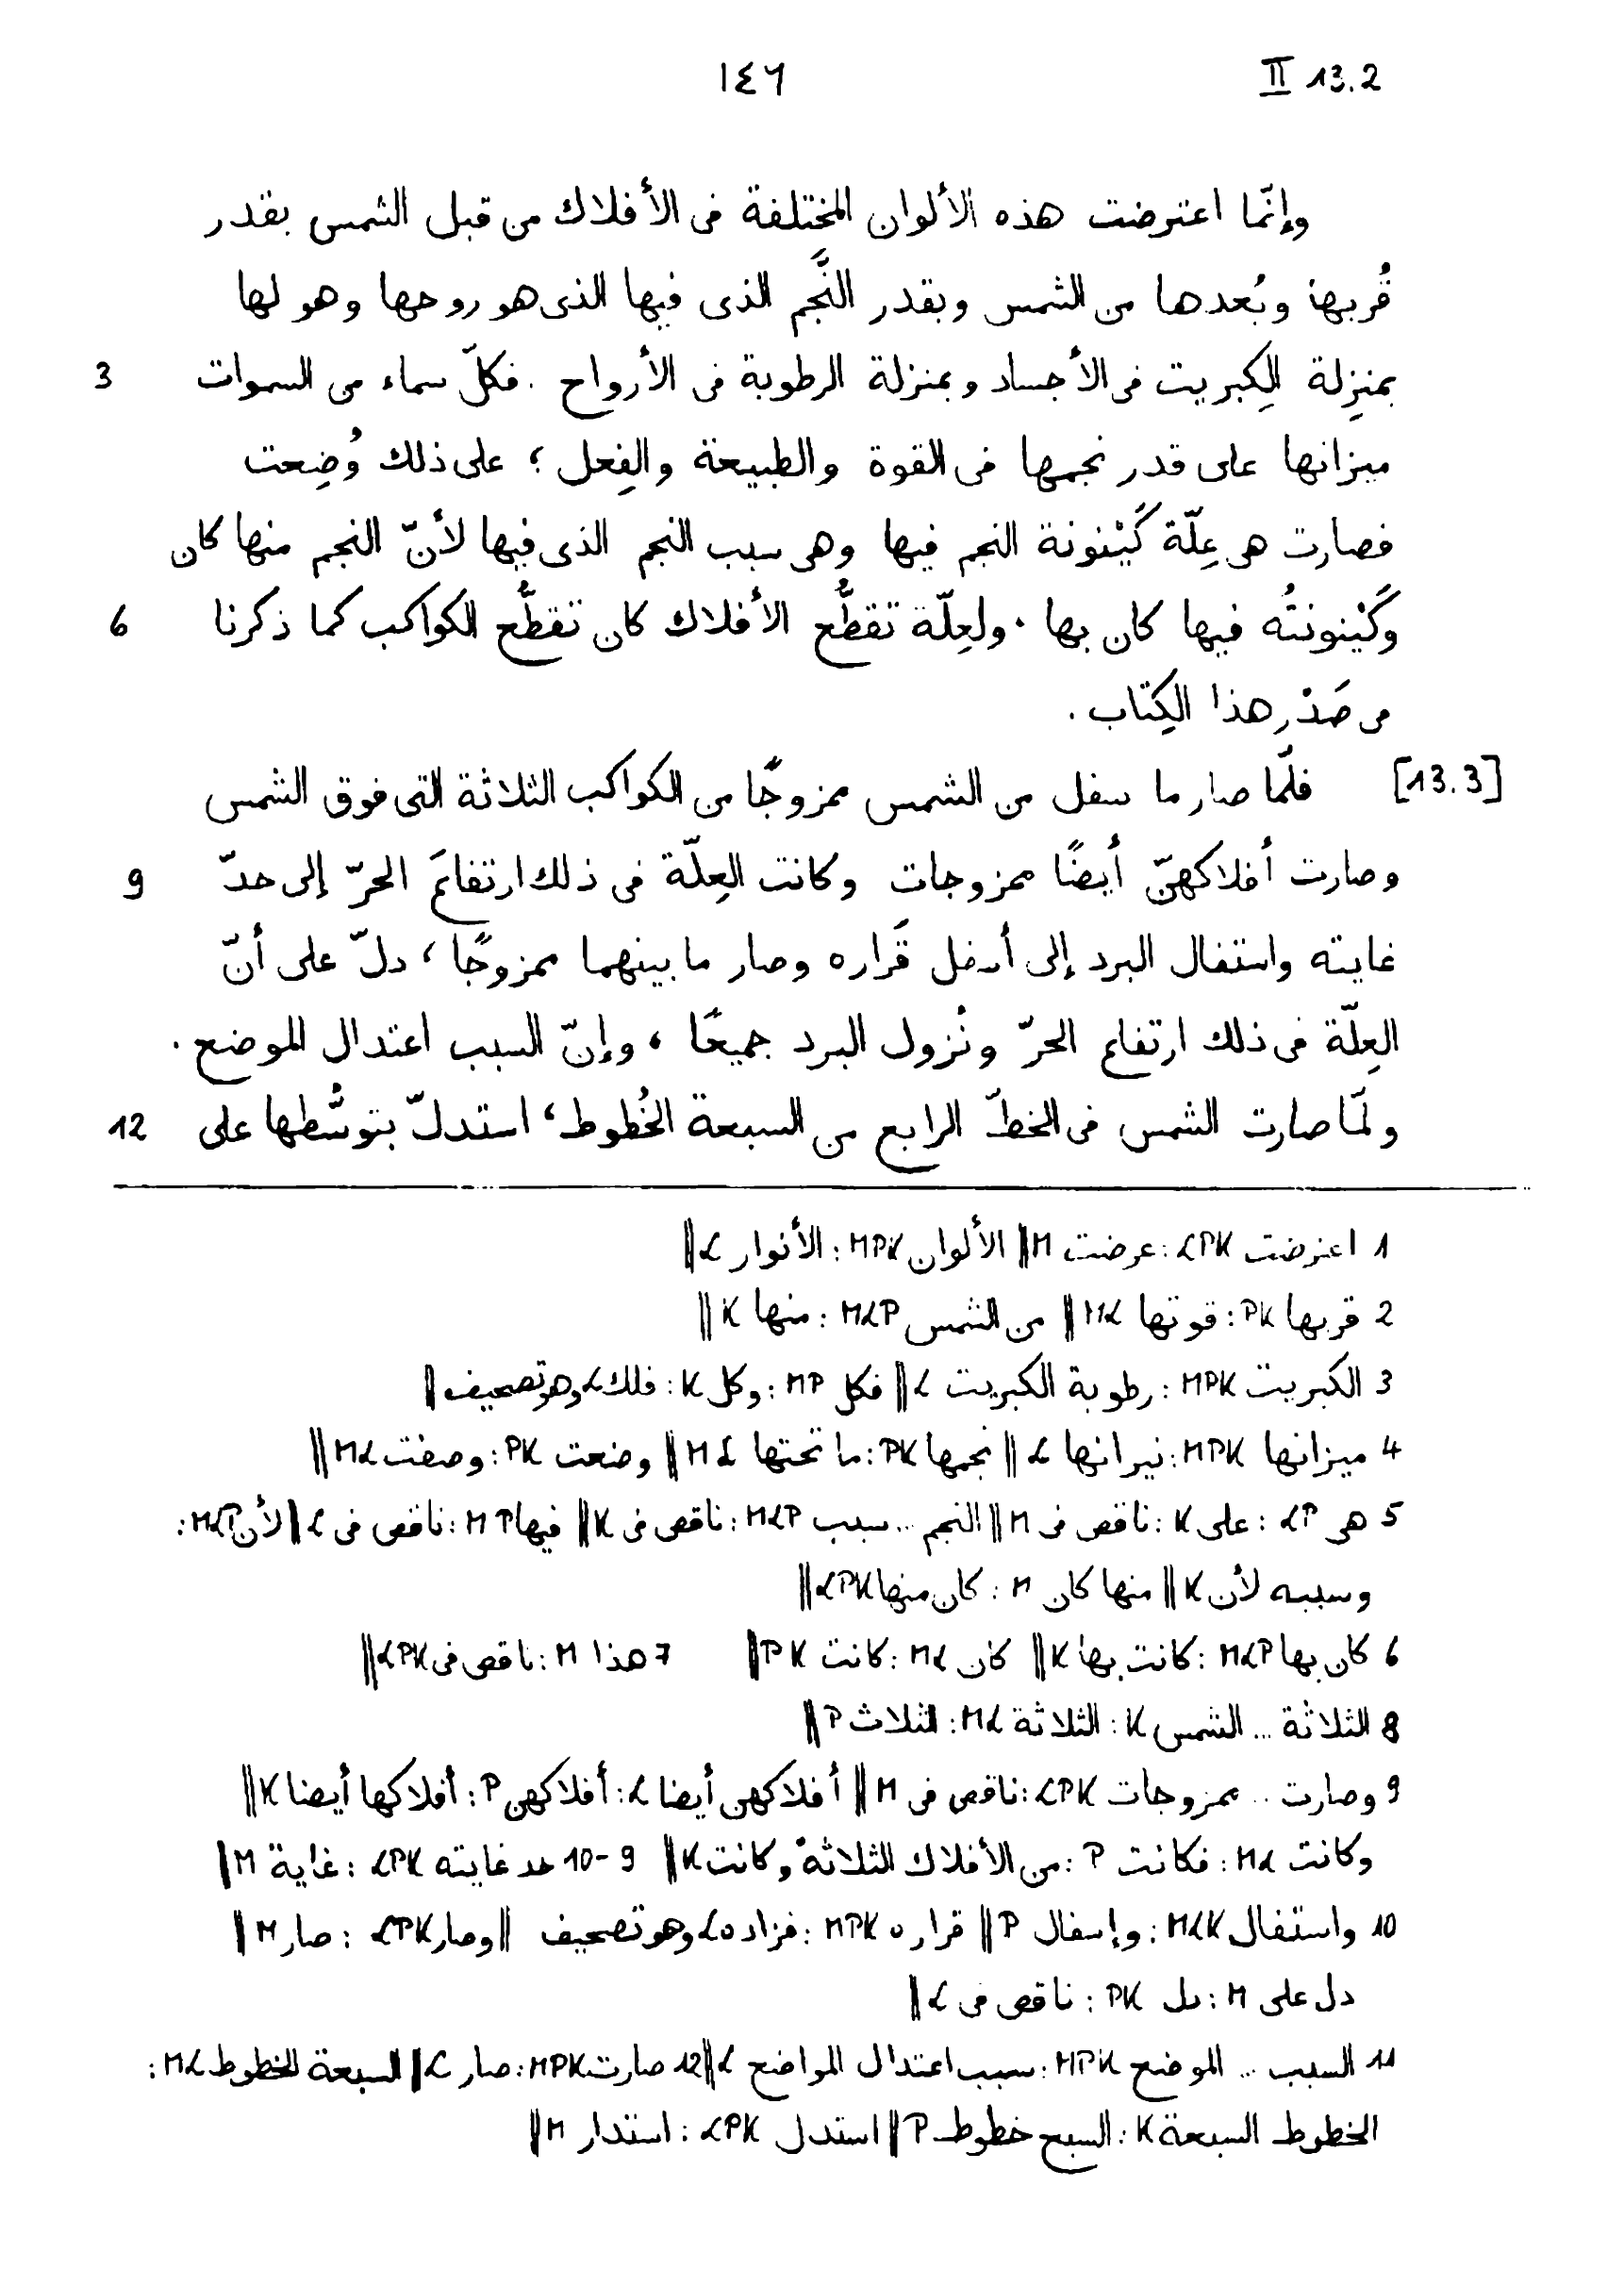 ١٤٦ II 13.2
وإنّما اعترضت هذه الألوان المختلفة فى الأفلاك من قبل الشمس بقدر
قُربها وبُعدها من الشمس وبقدر النَّجم الذى فيها الذى هو روحها وهو لها
بمنزِلة الكِبريت فى الأجساد وبمنزلة الرطوبة فى الأرواح . فكلّ سماء من السموات 3
ميزانها على قدر نجمها فى القوة والطبيعة والفِعل ؛ على ذلك وُضِعت
فصارت هى عِلّة كَيْنونة النجم فيها وهى سبب النجم الذى فيها لأنّ النجم منها كان
وكَيْنونتُه فيها كان بها . ولعِلّة تقطُّع الأفلاك كان تقطُّع الكواكب كما ذكرنا 6
من صَدْر هذا الكِتاب .
[13.3] فلمّا صار ما سفل من الشمس ممزوجًا من الكواكب الثلاثة التى فوق الشمس
وصارت أفلاكهنّ أيضًا ممزوجات وكانت العِلّة فى ذلك ارتفاعَ الحرّ إلى حدّ 9
غايته واستفال البرد إلى أسفل قَراره وصار ما بينهما ممزوجًا ، دلّ على أنّ
العِلّة فى ذلك ارتفاع الحرّ ونُزول البرد جميعًا ، وإنّ السبب اعتدال الموضع .
ولمّا صارت الشمس فى الخطّ الرابع من السبعة الخُطوط ، استدلّ بتوسُّطها على 12
1 اعترضت LPK : عرضت M || الألوان MPK : الأنوار L ||
2 قربها PK : قوتها ML || من الشمس MLP : منها K ||
3 الكبريت MPK : رطوبة الكبريت L || فكل MP : وكل K : فلك L وهو تصحيف ||
4 ميزانها MPK : نيرانها L || نجمها PK : ما تحتها ML || وضعت PK : وصفت ML ||
5 هى LP : على K : ناقص فى M || النجم ... سبب MLP : ناقص فى K || فيها MP : ناقص فى L || لأن MLP :
وسببه لأن K || منها كان M : كان منها LPK ||
6 كان بها MLP : كانت بها K || كان ML : كانت PK || 7 هذا M : ناقص فى LPK ||
8 الثلاثة ... الشمس K : الثلاثة ML : الثلاث P ||
9 وصارت ... ممزوجات LPK : ناقص فى M || أفلاكهن أيضا L : أفلاكهن P : أفلاكها أيضا K ||
وكانت ML : فكانت P : من الأفلاك الثلاثة وكانت K || 9-10 حد غايته LPK : غاية M ||
10 واستفال MLK : وإسفال P || قراره MPK : فزاده L وهو تصحيف || وصار LPK : صار M ||
دل على M : دل PK : ناقص فى L ||
11 السبب ... الموضع MPK : سبب اعتدال المواضع L || 12 صارت MPK : صار L || السبعة الخطوط ML :
الخطوط السبعة K : السبع خطوط P || استدل LPK : استدار M ||